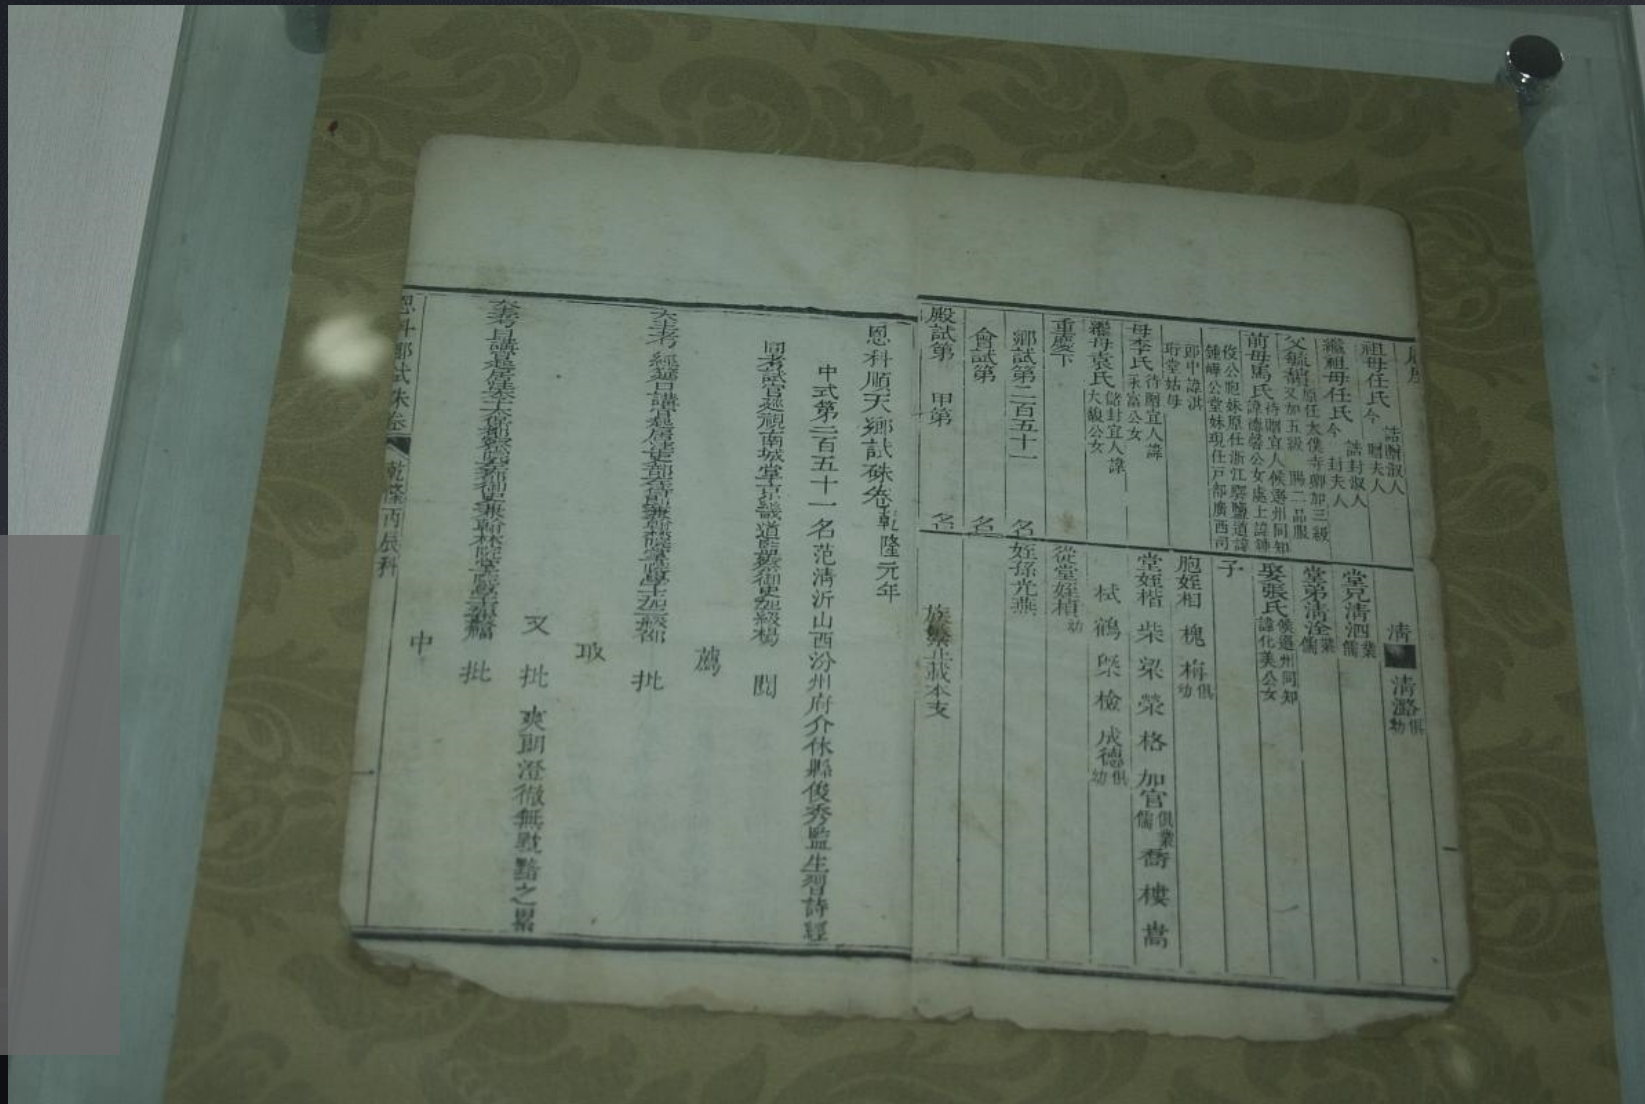 履歷
祖母任氏 誥贈淑人 今贈夫人
繼祖母任氏 誥封淑人 今封夫人
父毓𬤇 原任太僕寺卿加三級 又加五級 賜二品服
前母馬氏 待贈宜人候選州同知 諱德馨公女處士諱鍾
俊公胞妹原任浙江驛鹽道諱 鍾嶧公堂妹現任戶部廣西司
郎中諱淇 珩堂姑母
母李氏 待贈宜人諱 永富公女
繼母袁氏 儲封宜人諱 大馥公女
重慶下
鄉試第二百五十一名
會試第 名
殿試第 甲第 名
清 清潞 俱幼
堂兄清泗 業儒
堂弟清洤 業儒
娶張氏 候選州同知 諱化美公女
子
胞姪相 槐 梅 俱幼
堂姪楷 柴 梁 榮 格 加官 俱業儒 喬 樓 嵩
栻 鶴 槩 檢 成德 俱幼
從堂姪楨 幼
姪孫光燕
族繁止載本支
恩科順天鄉試硃卷 乾隆元年
中式第二百五十一名范清沂山西汾州府介休縣俊秀監生習詩經
同考試官巡視南城掌京畿道監察御史加級楊 閱
薦
大主考 經筵日講官起居注吏部左侍郎兼翰林院掌院學士加級邵 批
取
又批 爽朗澄徹無黕黯之累
大主考 批
中
恩科鄉試硃卷 乾隆丙辰科